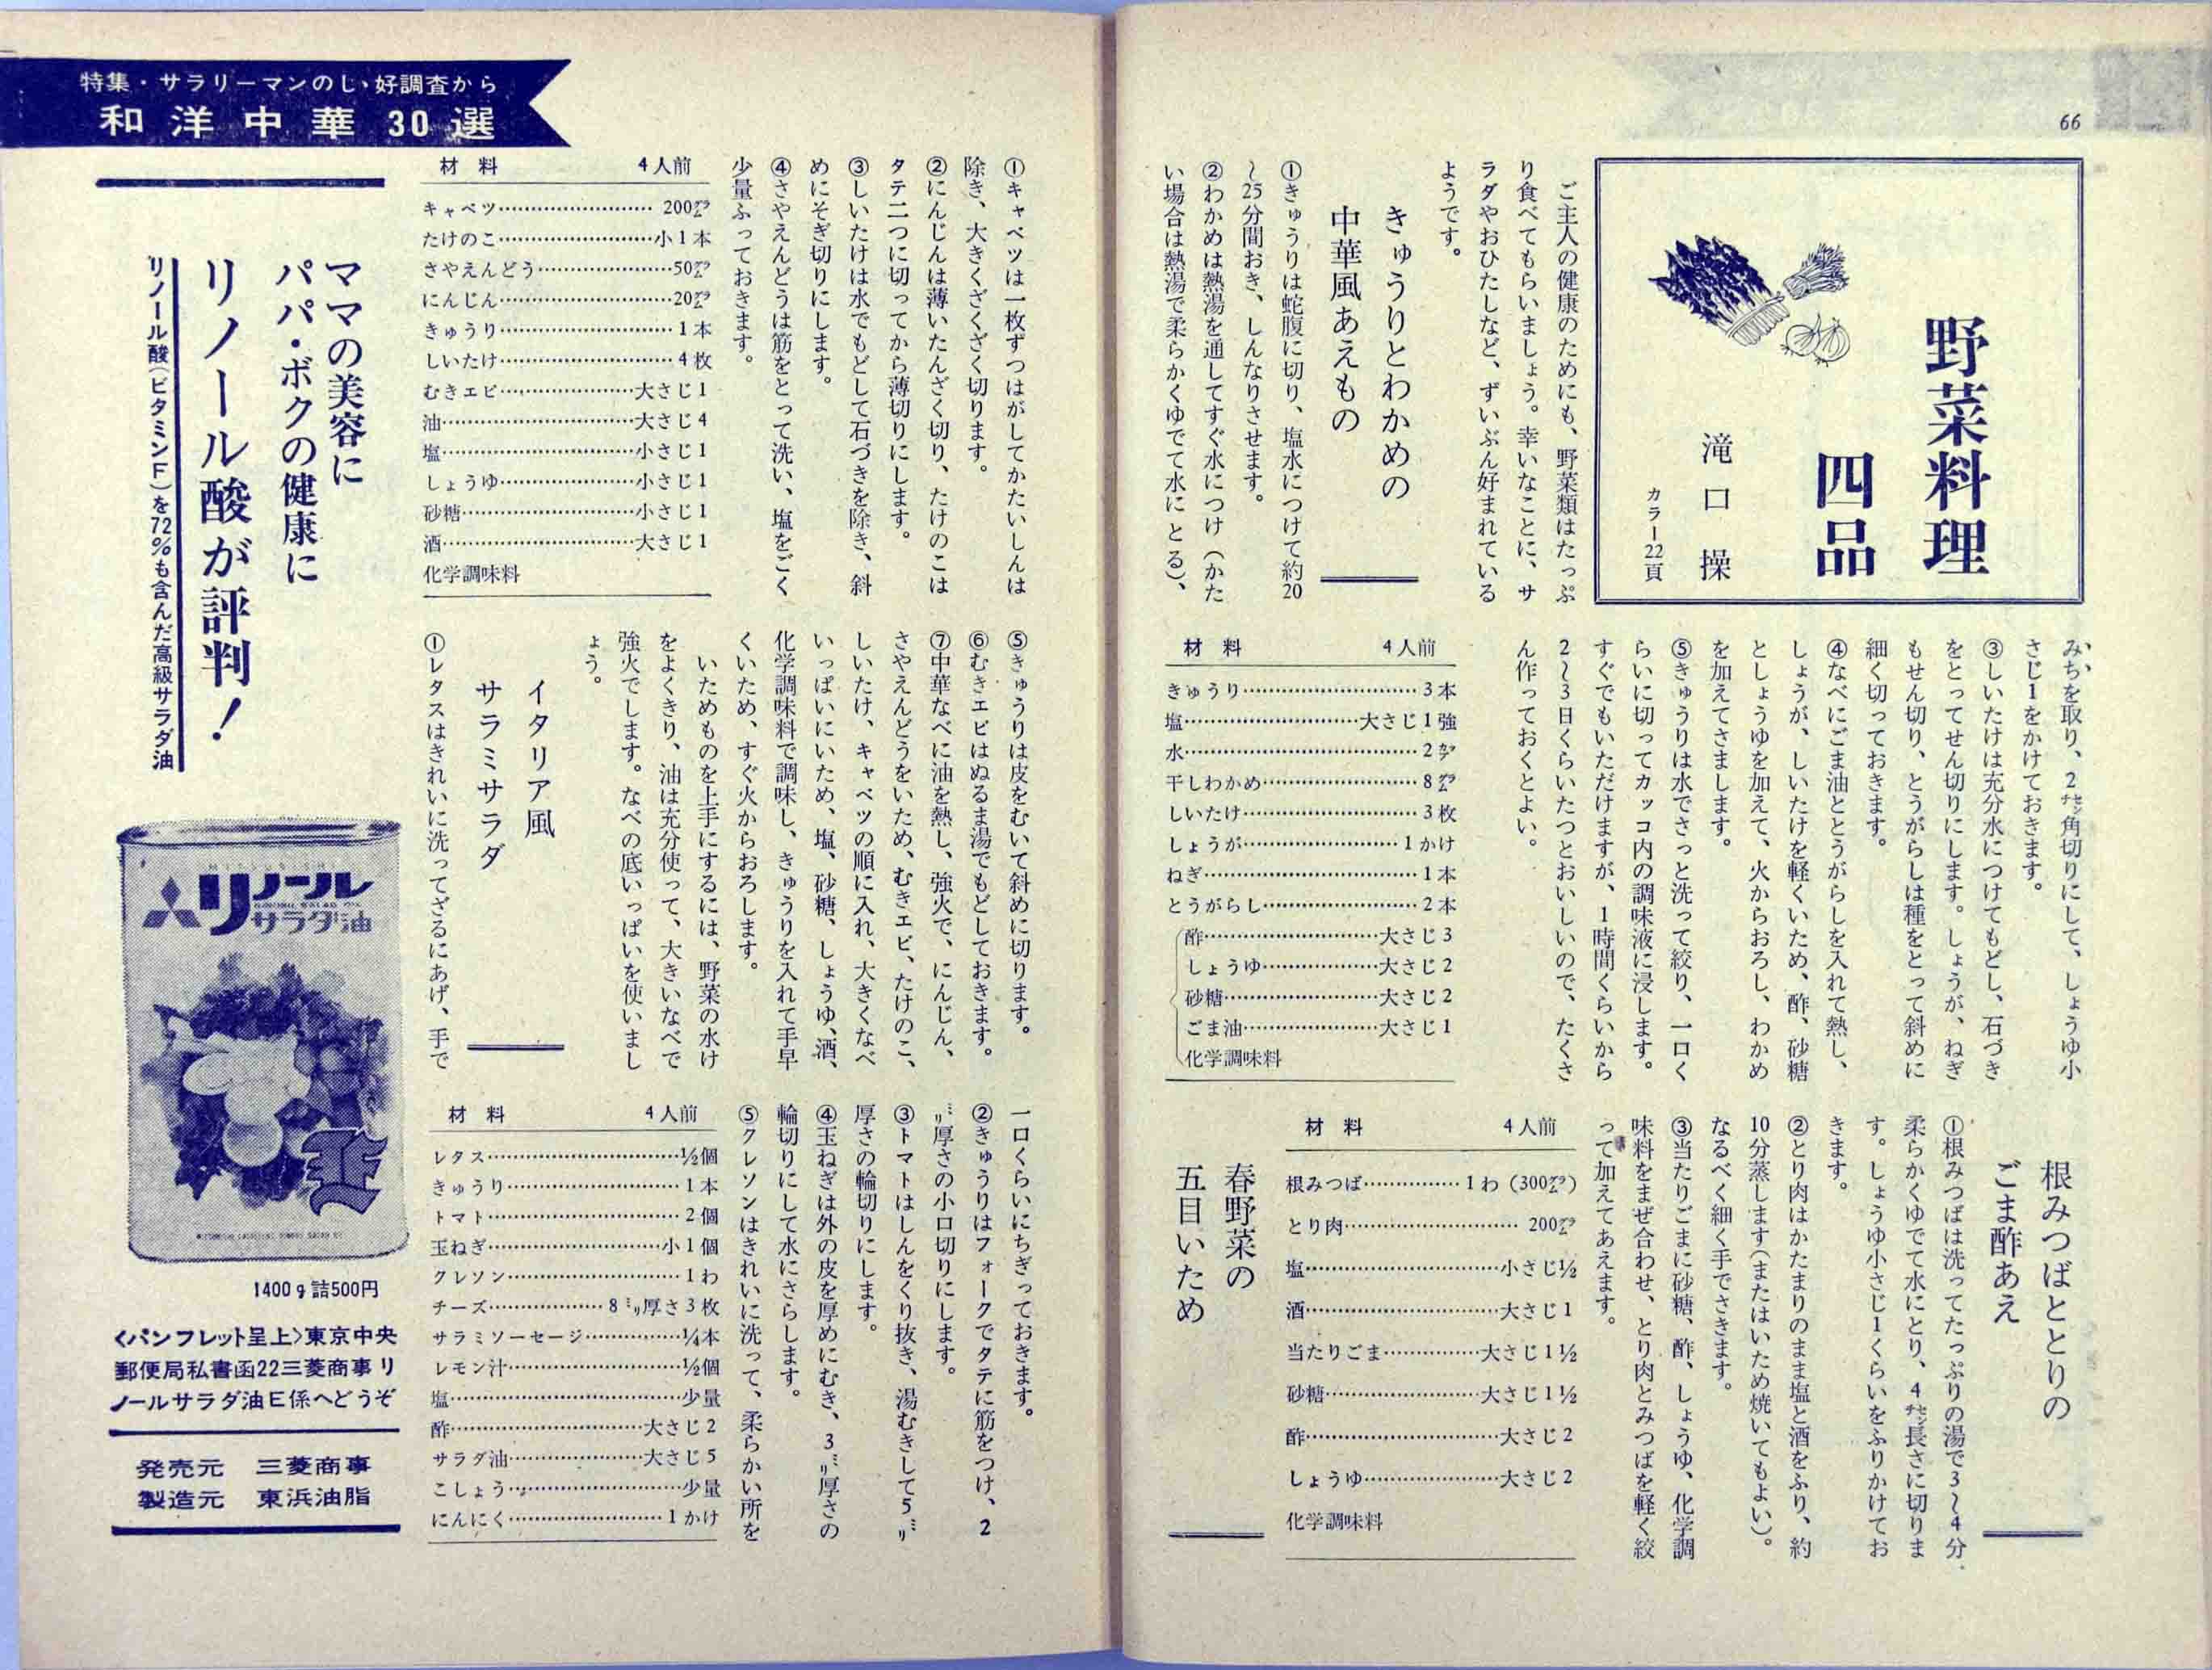 66
野菜料理
四品
滝口 操
カラー22頁
ご主人の健康のためにも、野菜類はたっぷ
り食べてもらいましょう。幸いなことに、サ
ラダやおひたしなど、ずいぶん好まれている
ようです。
きゅうりとわかめの
中華風あえもの
①きゅうりは蛇腹に切り、塩水につけて約20
〜25分間おき、しんなりさせます。
②わかめは熱湯を通してすぐ水につけ(かた
い場合は熱湯で柔らかくゆでて水にとる)、
みちを取り、2センチ角切りにして、しょうゆ小
さじ1をかけておきます。
③しいたけは充分水につけてもどし、石づき
をとってせん切りにします。しょうが、ねぎ
もせん切り、とうがらしは種をとって斜めに
細く切っておきます。
④なべにごま油ととうがらしを入れて熱し、
しょうが、しいたけを軽くいため、酢、砂糖
としょうゆを加えて、火からおろし、わかめ
を加えてさまします。
⑤きゅうりは水でさっと洗って絞り、一口く
らいに切ってカッコ内の調味液に浸します。
すぐでもいただけますが、1時間くらいから
2〜3日くらいたつとおいしいので、たくさ
ん作っておくとよい。
材料 4人前
きゅうり……3本
塩……大さじ1強
水……2カップ
干しわかめ……8グラム
しいたけ……3枚
しょうが……1かけ
ねぎ……1本
とうがらし……2本
酢……大さじ3
しょうゆ……大さじ2
砂糖……大さじ2
ごま油……大さじ1
化学調味料
根みつばととりの
ごま酢あえ
①根みつばは洗ってたっぷりの湯で3〜4分
柔らかくゆでて水にとり、4センチ長さに切りま
す。しょうゆ小さじ1くらいをふりかけてお
きます。
②とり肉はかたまりのまま塩と酒をふり、約
10分蒸します(またはいため焼いてもよい)。
なるべく細く手でさきます。
③当たりごまに砂糖、酢、しょうゆ、化学調
味料をまぜ合わせ、とり肉とみつばを軽く絞
って加えてあえます。
材料 4人前
根みつば……1わ(300グラム)
とり肉……200グラム
塩……小さじ½
酒……大さじ1
当たりごま……大さじ1½
砂糖……大さじ1½
酢……大さじ2
しょうゆ……大さじ2
化学調味料
春野菜の
五目いため
特集・サラリーマンのし好調査から
和洋中華30選
①キャベツは一枚ずつはがしてかたいしんは
除き、大きくざくざく切ります。
②にんじんは薄いたんざく切り、たけのこは
タテ二つに切ってから薄切りにします。
③しいたけは水でもどして石づきを除き、斜
めにそぎ切りにします。
④さやえんどうは筋をとって洗い、塩をごく
少量ふっておきます。
材料 4人前
キャベツ……200グラム
たけのこ……小1本
さやえんどう……50グラム
にんじん……20グラム
きゅうり……1本
しいたけ……4枚
むきエビ……大さじ1
油……大さじ4
塩……小さじ1
しょうゆ……小さじ1
砂糖……小さじ1
酒……大さじ1
化学調味料
⑤きゅうりは皮をむいて斜めに切ります。
⑥むきエビはぬるま湯でもどしておきます。
⑦中華なべに油を熱し、強火で、にんじん、
さやえんどうをいため、むきエビ、たけのこ、
しいたけ、キャベツの順に入れ、大きくなべ
いっぱいにいため、塩、砂糖、しょうゆ、酒、
化学調味料で調味し、きゅうりを入れて手早
くいため、すぐ火からおろします。
いためものを上手にするには、野菜の水け
をよくきり、油は充分使って、大きいなべで
強火でします。なべの底いっぱいを使いまし
ょう。
イタリア風
サラミサラダ
①レタスはきれいに洗ってざるにあげ、手で
一口くらいにちぎっておきます。
②きゅうりはフォークでタテに筋をつけ、2
ミリ厚さの小口切りにします。
③トマトはしんをくり抜き、湯むきして5ミリ
厚さの輪切りにします。
④玉ねぎは外の皮を厚めにむき、3ミリ厚さの
輪切りにして水にさらします。
⑤クレソンはきれいに洗って、柔らかい所を
材料 4人前
レタス……½個
きゅうり……1本
トマト……2個
玉ねぎ……小1個
クレソン……1わ
チーズ……8ミリ厚さ3枚
サラミソーセージ……¼本
レモン汁……½個
塩……少量
酢……大さじ2
サラダ油……大さじ5
こしょう……少量
にんにく……1かけ
ママの美容に
パパ・ボクの健康に
リノール酸が評判!
リノール酸(ビタミンF)を72%も含んだ高級サラダ油
MITSUBISHI
リノール
サラダ油
1400g詰500円
〈パンフレット呈上〉東京中央
郵便局私書函22三菱商事リ
ノールサラダ油E係へどうぞ
発売元 三菱商事
製造元 東浜油脂